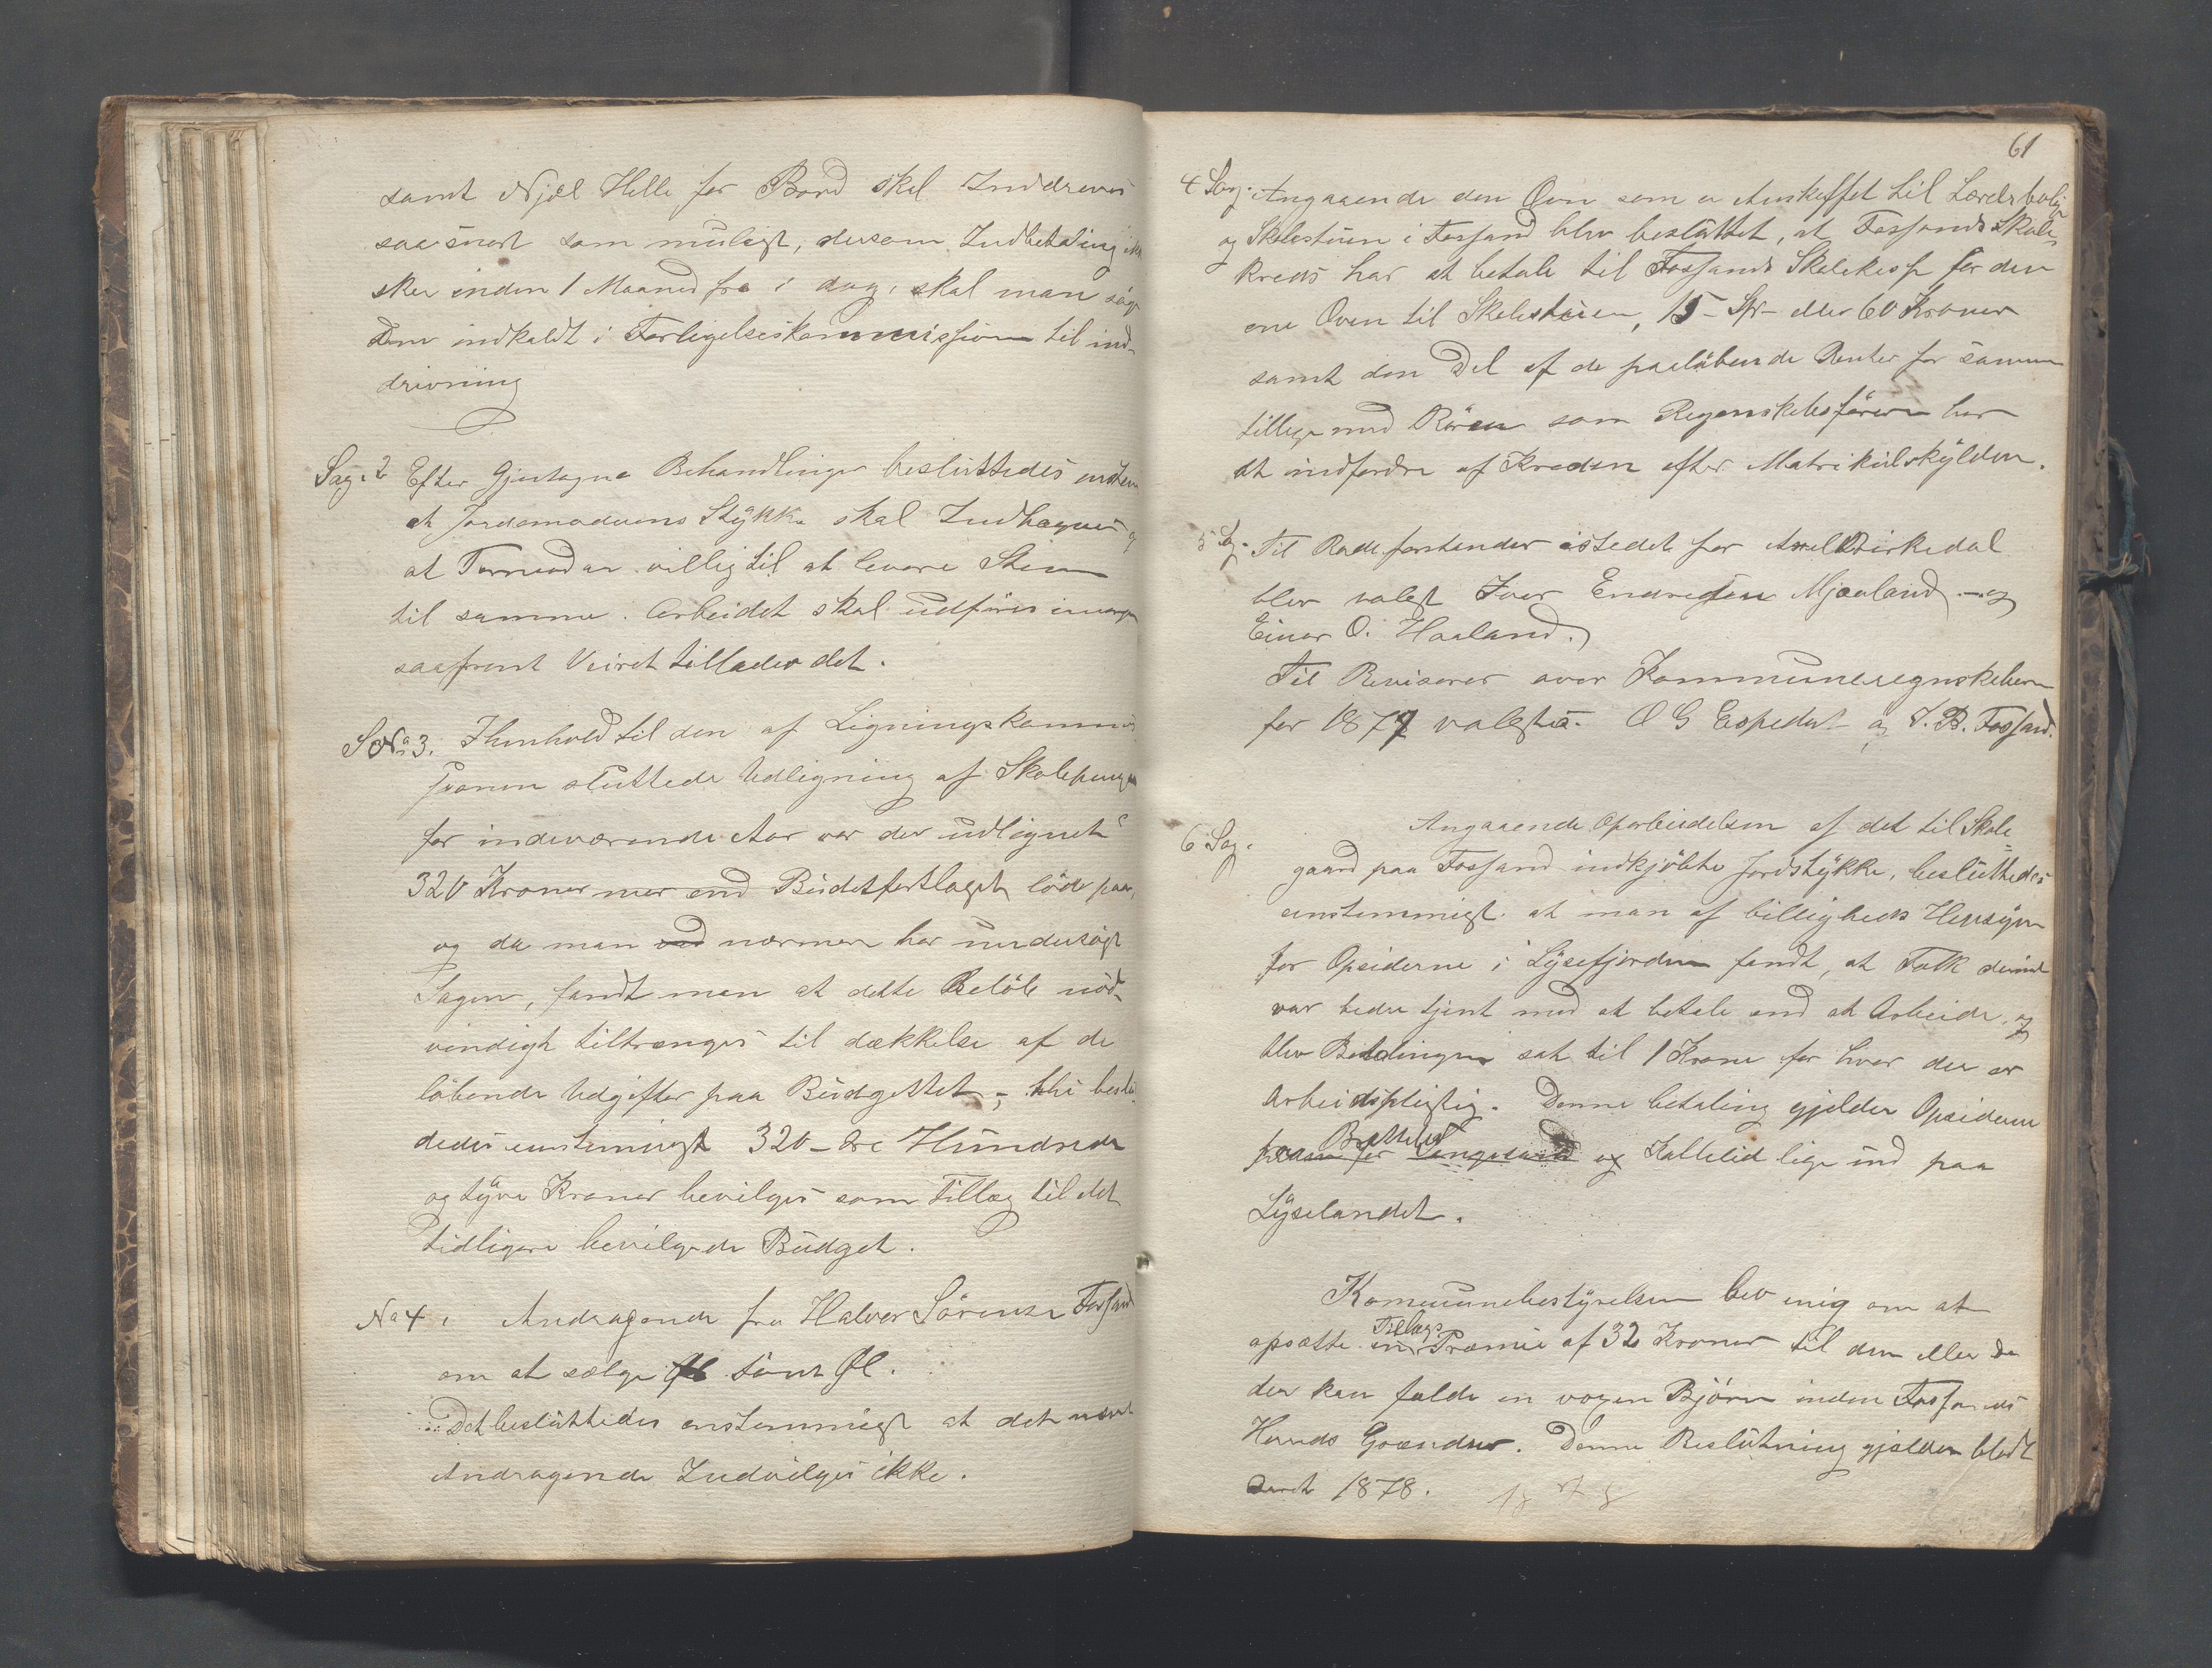 samt Njål Helle for Bord skal Inddrives
saasnart som muligt, dersom Indbetaling ikke
sker inden 1 Maaned fra i dag, skal man søge
Dem indkaldt i Forligelseskommissionen til ind-
drivning
Sag. 2 Efter Gjentagne Behandlinger besluttedes enstem
at Jordemoderens Stykke skal Indhegnes og
at Formanden villig til at levere Sten
til samme. Arbeidet skal udføres imorgen
saafremt Veiret tillader det.
S No 3. I Henhold til den af Ligningskommis
sionen sluttede Udligning af Skolepenge
for indeværende Aar var der udlignet
320 Kroner mer end Budetforslaget lød paa,
og da man ved nærmere har undersøgt
Sagen, fandt man at dette Beløb nød-
vendigt tiltrænges til dækkelse af de
løbende Udgifter paa Budgettet; thi beslut
dedes enstemigt 320 - tre Hundrede
og tyve Kroner bevilges som Tillæg til det
tidligere bevilgede Budget.
No 4, Andragende fra Halvor Sørensen Fossand
om at sælge Øl tønt Øl.
Det besluttedes enstemmigt at det nævnte
Andragende Indvilges ikke.
61
4 Sag. Angaaende den Ovn som er Anskaffet til Lærerbolig
og Skolestuen i Fossand blev besluttet, at Fossands Skole
kreds har at betale til Fossands Skolekasse for den
ene Oven til Skolestuen, 15 Spr eller 60 Kroner
samt den Del af de paaløbende Renter for samme
tillige med Røren som Regenskabsføreren har
at indfordre af Kredsen efter Matrikulskylden.
5 Sag. Til Rodeforstander istedet for Axel Birkedal
blev valgt Iver Endresen Mjaaland og
Einar O. Haaland.
Til Revisorer over Kommuneregnskaberne
for 1877 valgtes. O G Espedal og T. B. Fossand.
6 Sag. Angaaende Oparbeidelsen af det til Skole
gaard paa Fossand indkjøbte Jordstykke, besluttedes
enstemmigt at man af billigheds Hensyn
for Opsiderne i Lysefjorden fandt, at Folk derinde
var bedre tjent med at betale end at Arbeide, og
blev Betalingen sat til 1 Krone for hver der er
Arbeidspligtig. Denne betaling gjelder Opsiderne
Bratteli
fra og Kallelid lige ind paa
Lyselandet.
Kommunebestyrelsen blev enig om at
Tillægs
opsætte en Præmie af 32 Kroner til den eller de
der kan fælde en voxen Bjørn inden Fossands
Herreds Grændser. Denne Beslutning gjælder blodt
Aaret 1878.